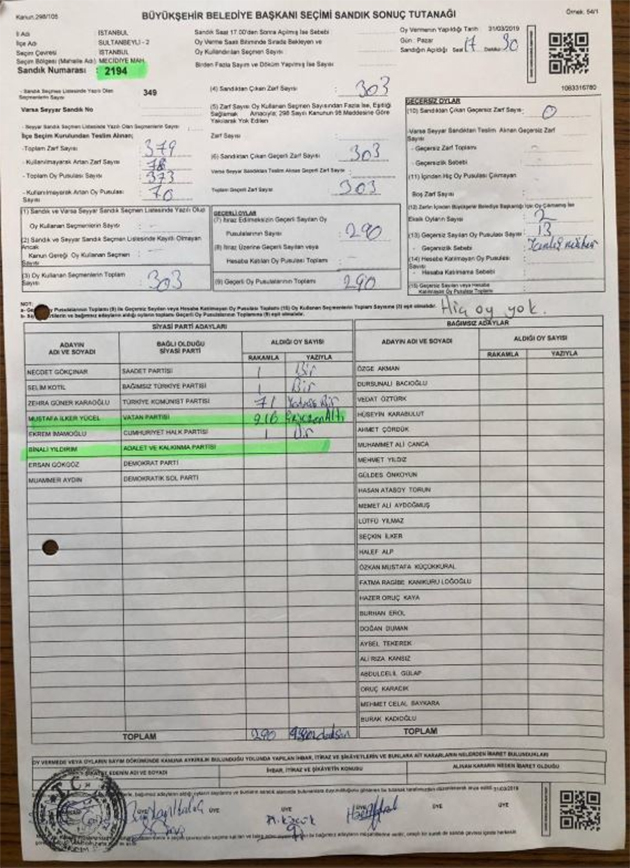 Kanun.298/105
BÜYÜKŞEHİR BELEDİYE BAŞKANI SEÇİMİ SANDIK SONUÇ TUTANAĞI
Örnek. 54/1
İl Adı : İSTANBUL
İlçe Adı : SULTANBEYLİ - 2
Seçim Çevresi : İSTANBUL
Seçim Bölgesi (Mahalle Adı): MECİDİYE MAH.
Sandık Numarası : 2194
Sandık Saat 17.00'den Sonra Açılmış İse Sebebi :
Oy Verme Saati Bitiminde Sırada Bekleyen ve
Oy Kullandırılan Seçmen Sayısı :
Birden Fazla Sayım ve Döküm Yapılmış İse Sayısı :
Oy Vermenin Yapıldığı Tarih : 31/03/2019
Gün : Pazar
Sandığın Açıldığı Saat 17 Dakika 30
1083316780
- Sandık Seçmen Listesinde Yazılı Olan Seçmenlerin Sayısı : 349
Varsa Seyyar Sandık No
- Seyyar Sandık Seçmen Listesinde Yazılı Olan Seçmenlerin Sayısı :
İlçe Seçim Kurulundan Teslim Alınan;
-Toplam Zarf Sayısı : 379
-Kullanılmayarak Artan Zarf Sayısı : 76
- Toplam Oy Pusulası Sayısı : 373
- Kullanılmayarak Artan Oy Pusulası Sayısı : 70
(4) Sandıktan Çıkan Zarf Sayısı : 303
(5) Zarf Sayısı Oy Kullanan Seçmen Sayısından Fazla ise, Eşitliği Sağlamak Amacıyla; 298 Sayılı Kanunun 98 Maddesine Göre Yakılarak Yok Edilen
Zarf Sayısı :
(6) Sandıktan Çıkan Geçerli Zarf Sayısı : 303
Varsa Seyyar Sandıktan Teslim Alınan Geçerli Zarf Sayısı :
Toplam Geçerli Zarf Sayısı : 303
GEÇERSİZ OYLAR
(10) Sandıktan Çıkan Geçersiz Zarf Sayısı : 0
-Varsa Seyyar Sandıktan Teslim Alınan Geçersiz Zarf Sayısı :
- Geçersiz Zarf Toplamı :
- Geçersizlik Sebebi :
(11) İçinden Hiç Oy Pusulası Çıkmayan
Boş Zarf Sayısı :
Eksik Oyların Sayısı : 2
(13) Geçersiz Sayılan Oy Pusulası Sayısı : 13
Geçersizlik Sebebi :
(14) Hesaba Katılmayan Oy Pusulası Sayısı
- Hesaba Katılmama Sebebi :
(15) Geçersiz Sayılan veya Hesaba Katılmayan Oy Pusulası Toplamı
(1) Sandık ve Varsa Seyyar Sandık Seçmen Listesinde Yazılı Olup
Oy Kullanan Seçmenlerin Sayısı :
(2) Sandık ve Varsa Seyyar Sandık Seçmen Listesinde Kayıtlı Olmayan Ancak
Kanun Gereği Oy Kullanan Seçmenlerin Sayısı :
(3) Oy Kullanan Seçmenlerin Toplam Sayısı : 303
GEÇERLİ OYLAR
(7) İtiraz Edilmeksizin Geçerli Sayılan Oy
Pusulalarının Sayısı : 290
(8) İtiraz Üzerine Geçerli Sayılan veya
Hesaba Katılan Oy Pusulaları Toplamı :
(9) Geçerli Oy Pusulalarının Toplamı : 290
NOT:
Hiç oy yok.
SİYASİ PARTİ ADAYLARI
BAĞIMSIZ ADAYLAR
ADAYIN ADI VE SOYADI
BAĞLI OLDUĞU SİYASİ PARTİ
ALDIĞI OY SAYISI
RAKAMLA YAZIYLA
ADAYIN ADI VE SOYADI
ALDIĞI OY SAYISI
RAKAMLA YAZIYLA
NECDET GÖKÇINAR SAADET PARTİSİ 1 Bir
SELİM KOTİL BAĞIMSIZ TÜRKİYE PARTİSİ 1 Bir
ZEHRA GÜNER KARAOĞLU TÜRKİYE KOMÜNİST PARTİSİ 71
MUSTAFA İLKER YÜCEL VATAN PARTİSİ 216
EKREM İMAMOĞLU CUMHURİYET HALK PARTİSİ 1 Bir
BİNALİ YILDIRIM ADALET VE KALKINMA PARTİSİ
ERSAN GÖKGÖZ DEMOKRAT PARTİ
MUAMMER AYDIN DEMOKRATİK SOL PARTİ
ÖZGE AKMAN
DURSUNALİ BACIOĞLU
VEDAT ÖZTÜRK
HÜSEYİN KARABULUT
AHMET ÇÖRDÜK
MUHAMMET ALİ CANCA
MEHMET YILDIZ
GÜLDES ÖNKOYUN
HASAN ATASOY TORUN
MEMET ALİ AYDOĞMUŞ
LÜTFÜ YILMAZ
SEÇKİN İLKER
HALEF ALP
ÖZKAN MUSTAFA KÜÇÜKKURAL
FATMA RAGİBE KANIKURU LOĞOĞLU
HAZER ORUÇ KAYA
BURHAN EROL
DOĞAN DUMAN
AYSEL TEKEREK
ALİ RIZA KANSIZ
ABDULCELİL GÜLAP
ORUÇ KARADIK
MEHMET CELAL BAYKARA
BURAK KADIOĞLU
TOPLAM 290
TOPLAM
OY VERMEDE VEYA OYLARIN SAYIM DÖKÜMÜNDE KANUNA AYKIRILIK BULUNDUĞU YOLUNDA YAPILAN İHBAR, İTİRAZ VE ŞİKAYETLERİN VE BUNLARA AİT KARARLARIN NELERDEN İBARET BULUNDUKLARI
İHBAR, İTİRAZ VE ŞİKAYETİN KONUSU
ALINAN KARARIN NEDEN İBARET OLDUĞU
31/03/2019
ÜYE
ÜYE
ÜYE